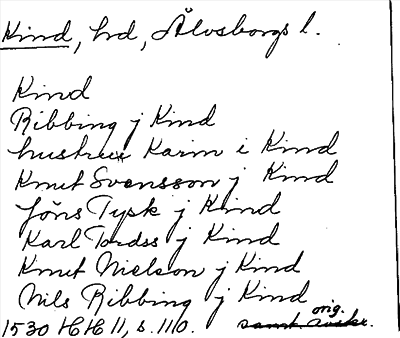 Kind, hd, Älvsborgs l.
Kind
Ribbing j Kind
hustru Karin i Kind
Knut Svensson j Kind
Jöns Tysk j Kind
Karl Tordss j Kind
Knut Nielson j Kind
Nils Ribbing j Kind
orig.
1530 HH 11, s. 110. samt avskr.